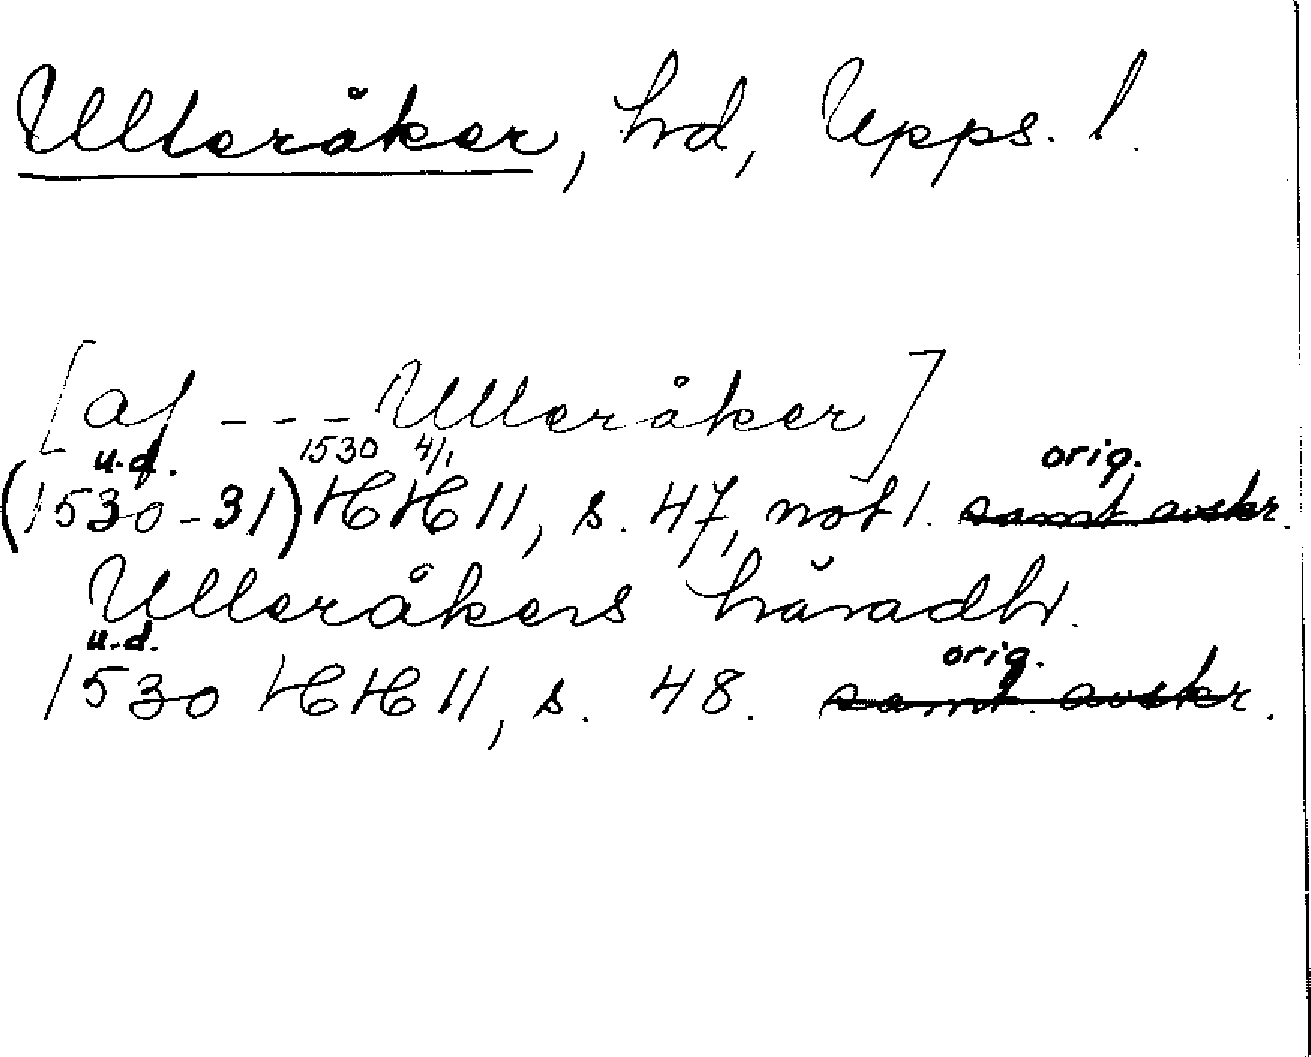 Ulleråker, hd, Upps. l.
[af --- Ulleråker]
u.d. 1530 4/1 orig.
(1530-31) HH 11, s. 47, not 1. samt avskr.
Ulleråkers häradh.
u.d. orig.
1530 HH 11, s. 48. samt avskr.